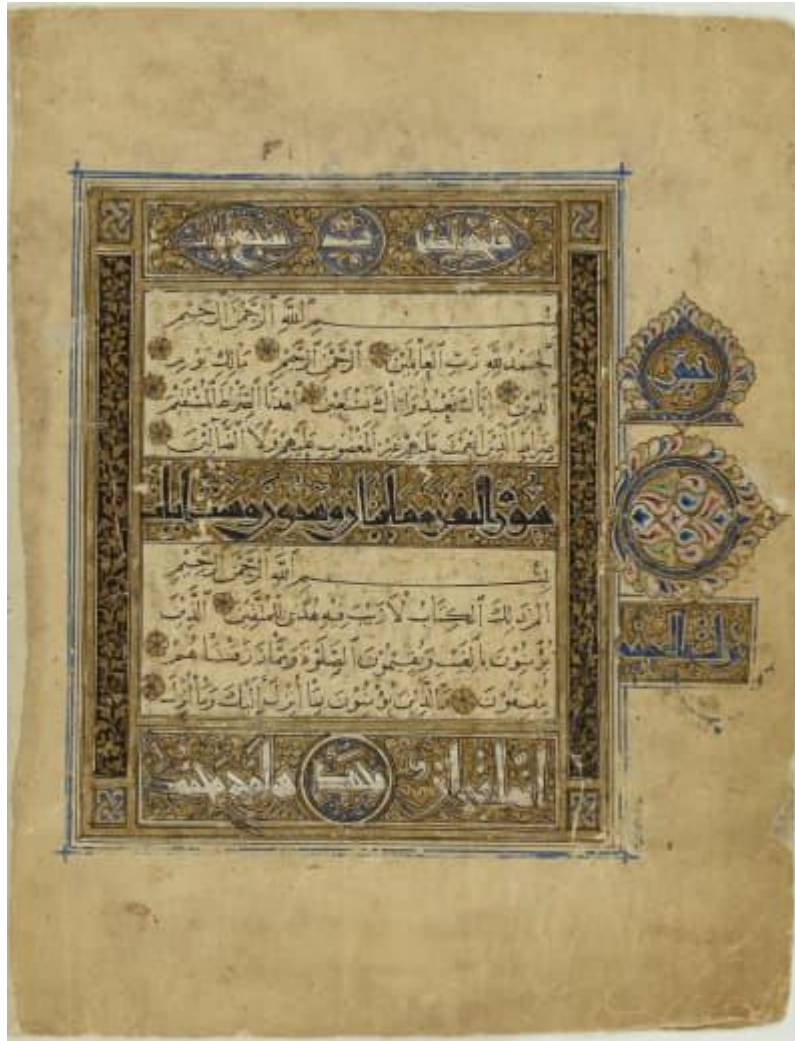 بسم الله الرحمن الرحيم
الحمد لله رب العالمين الرحمن الرحيم مالك يوم
الدين إياك نعبد وإياك نستعين اهدنا الصراط المستقيم
صراط الذين أنعمت عليهم غير المغضوب عليهم ولا الضالين
سورة البقرة مايتان و ثمانون وست ايات
بسم الله الرحمن الرحيم
الم ذلك الكتاب لا ريب فيه هدى للمتقين الذين
يؤمنون بالغيب ويقيمون الصلوة ومما رزقناهم
ينفقون والذين يؤمنون بما أنزل إليك وما أنزل